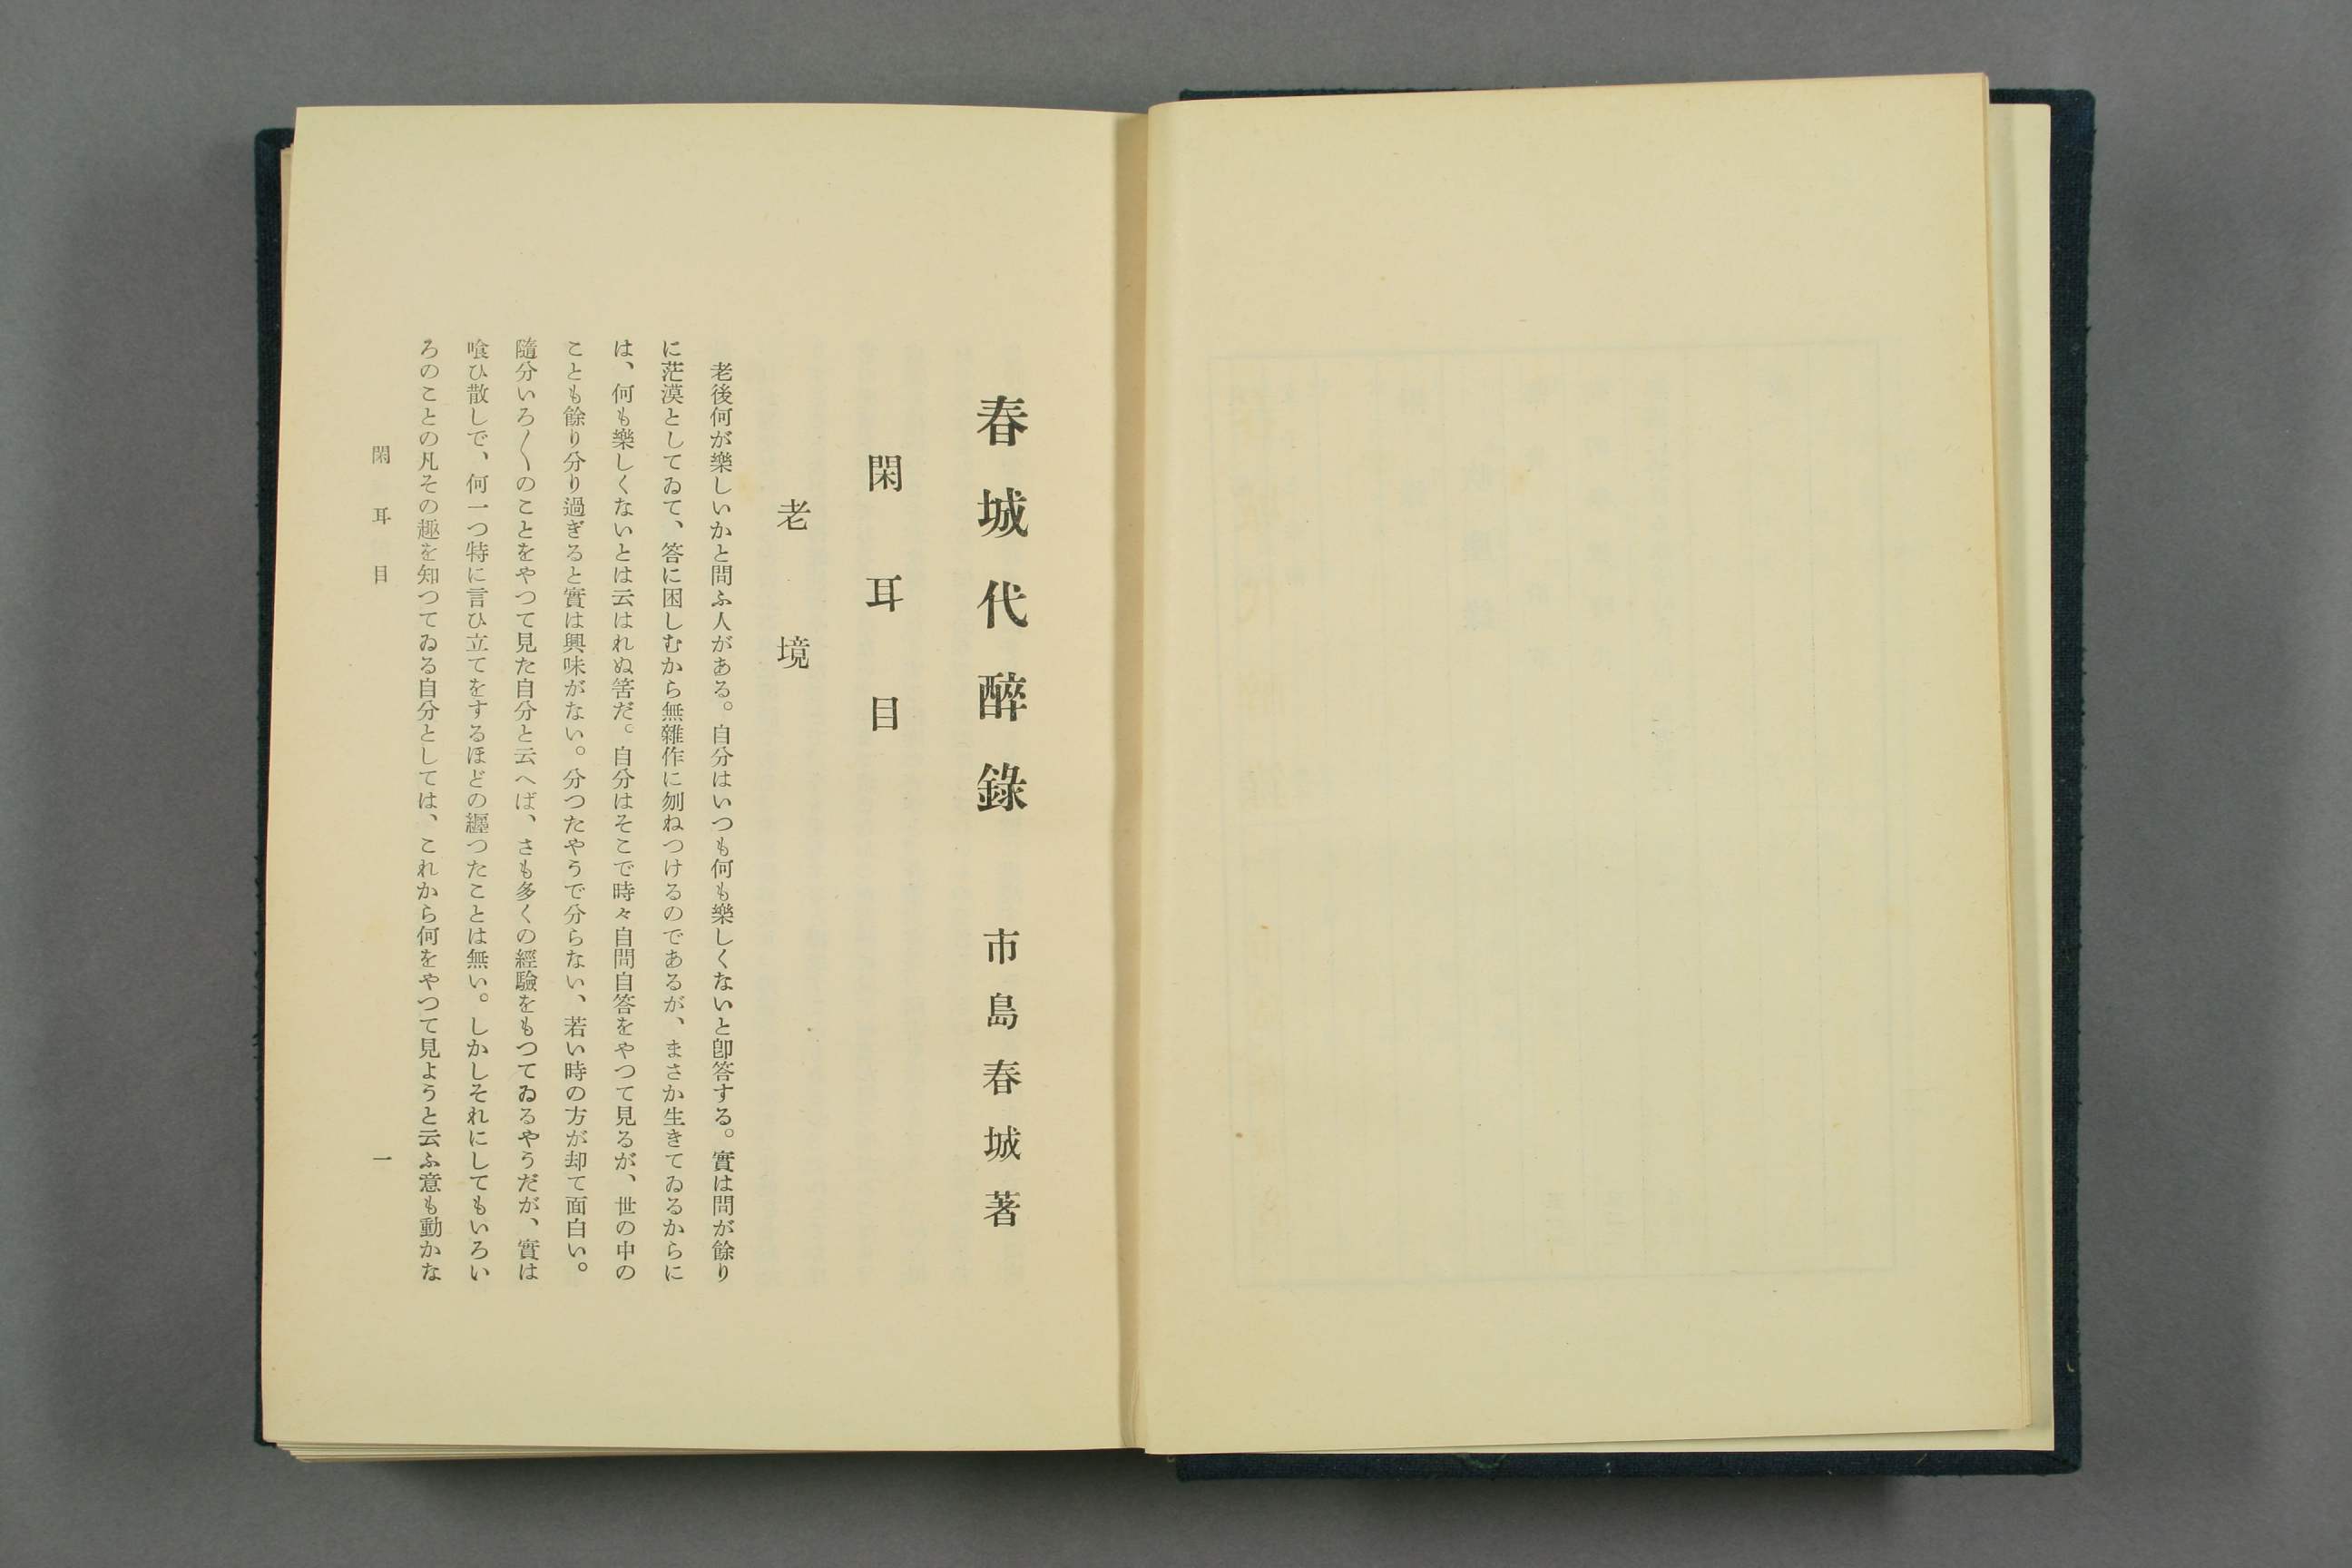 春城代醉錄　市島春城著
閑耳目
老境
老後何が樂しいかと問ふ人がある。自分はいつも何も樂しくないと卽答する。實は問が餘り
に茫漠としてゐて、答に困しむから無雜作に刎ねつけるのであるが、まさか生きてゐるからに
は、何も樂しくないとは云はれぬ筈だ。自分はそこで時々自問自答をやつて見るが、世の中の
ことも餘り分り過ぎると實は興味がない。分つたやうで分らない、若い時の方が却て面白い。
隨分いろ〱のことをやつて見た自分と云へば、さも多くの經驗をもつてゐるやうだが、實は
喰ひ散しで、何一つ特に言ひ立てをするほどの纒つたことは無い。しかしそれにしてもいろい
ろのことの凡その趣を知つてゐる自分としては、これから何をやつて見ようと云ふ意も動かな
閑耳目
一